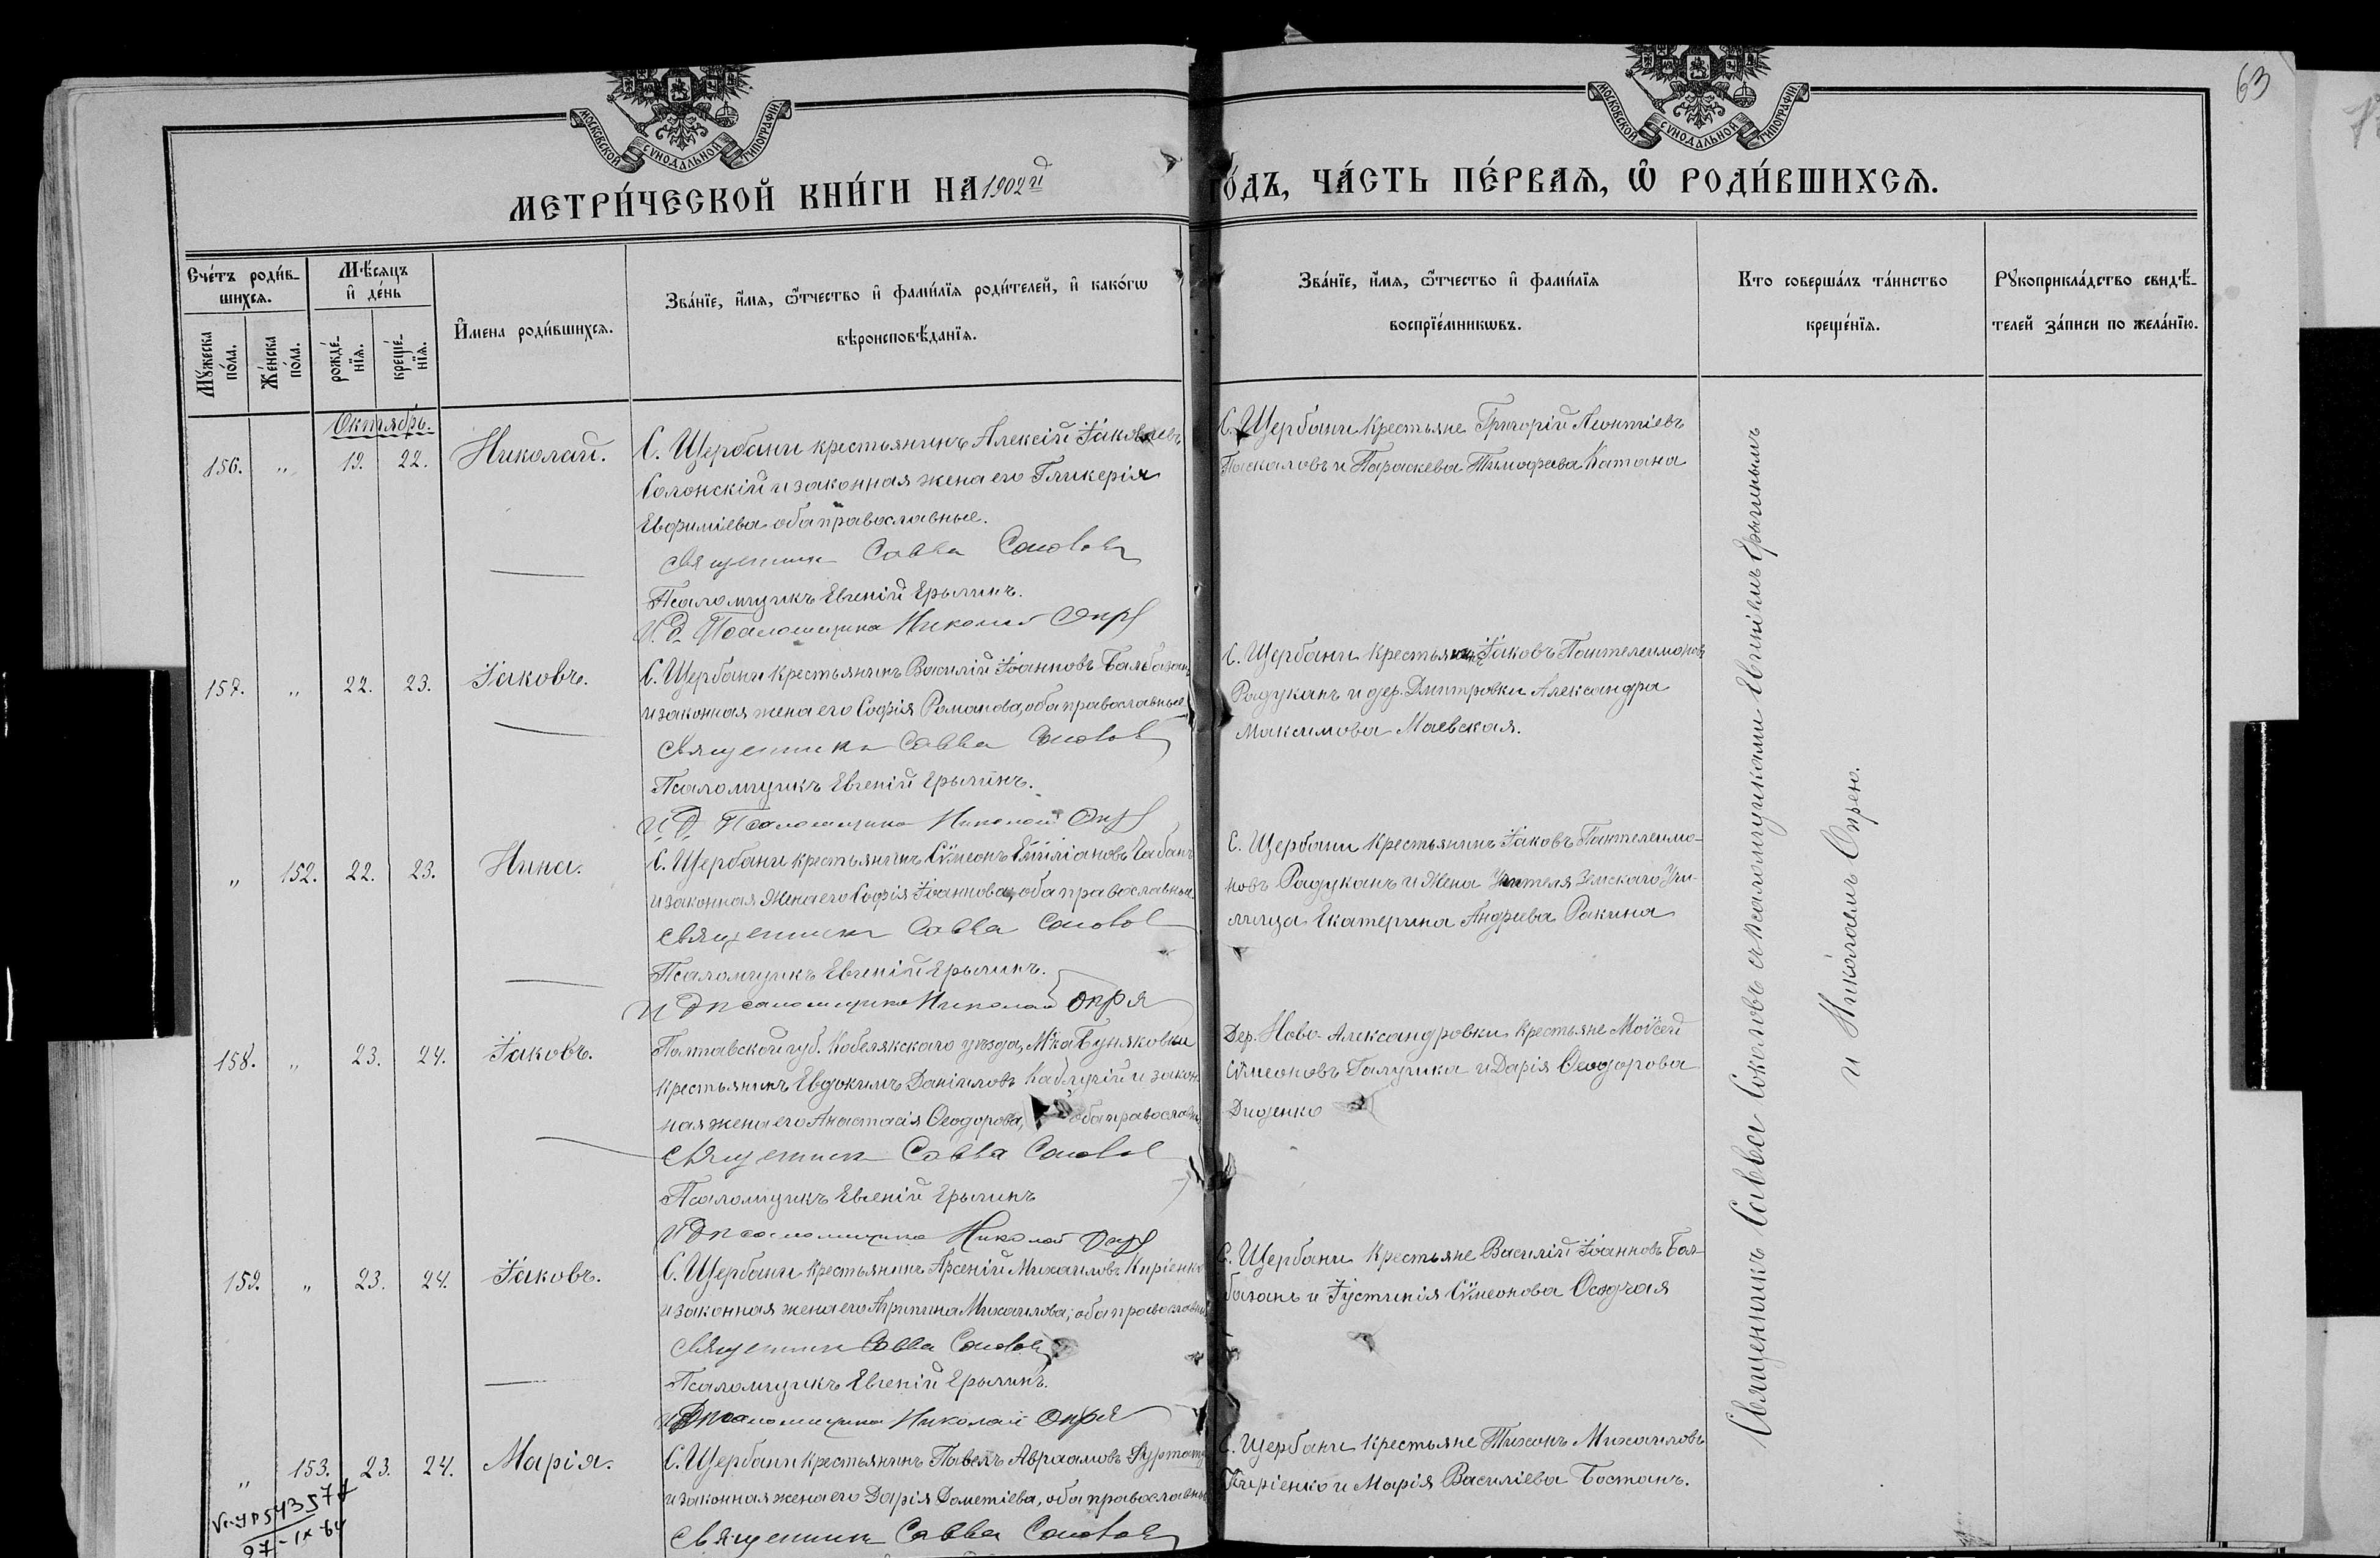 63
МОСКОВСКОЙ СѴНОДАЛЬНОЙ ТИПОГРАФІИ
МОСКОВСКОЙ СѴНОДАЛЬНОЙ ТИПОГРАФІИ
МЕТРИ́ЧЕСКОЙ КНИ́ГИ НА 1902й
ГО́ДЪ, ЧА́СТЬ ПЕ́РВАѦ, Ѿ РОДИ́ВШИХСѦ.
Сче́тъ роди́в-
шихсѧ.
Мꙋ́жеска по́ла.
Же́нска по́ла.
Мѣ́сѧцъ
и҆ де́нь
рожде́-
нїѧ.
креще́-
нїѧ.
И҆мена роди́вшихсѧ.
Зва́нїе, и҆́мѧ, ѻ҆́тчество и҆ фами́лїѧ роди́телей, и҆ како́гѡ
вѣроисповѣ́данїѧ.
Зва́нїе, и҆́мѧ, ѻ҆́тчество и҆ фами́лїѧ
воспрїе́мникѡвъ.
Кто соверша́лъ та́инство
креще́нїѧ.
Рꙋкоприкла́дство свидѣ́-
телей за́писи по жела́нїю.
Октябрь.
156. „ 19. 22. Николай.
С. Щербани крестьянинъ Алексій Іаковлевъ
Солонскій и законная жена его Гликерія
Евфиміева оба православные.
Священник Савва Соколов
Псаломщикъ Евгеній Ерылинъ.
И. д. Псаломщика Николай Опря
С. Щербани крестьяне Григорій Леонтіевъ
Паскаловъ и Параскева Тимофеева Катана
157. „ 22. 23. Іаковъ.
С. Щербани крестьянинъ Василій Іоанновъ Балбазанъ
и законная жена его Софія Романова, оба православные
Священник Савва Соколов
Псаломщикъ Евгеній Ерылинъ.
И. Д. Псаломщика Николай Опря
С. Щербани крестьянинъ Іаковъ Пантелеимоновъ
Радуканъ и дер. Дмитровки Александра
Максимова Маевская.
„ 152. 22. 23. Нина.
С. Щербани крестьянинъ Сѵмеонъ Емиліановъ Чабанъ
и законная жена его Софія Іоаннова, оба православные
Священник Савва Соколов
Псаломщикъ Евгеній Ерылинъ.
И Д псаломщика Николай Опря
С. Щербани крестьянинъ Іаковъ Пантелеимо-
новъ Радуканъ и жена учителя Земскаго Учи-
лища Екатерина Андреева Ракина
158. „ 23. 24. Іаковъ.
Полтавской губ. Кобелякскаго уѣзда, М-ка Буняковки
крестьянинъ Евдокимъ Даніиловъ Каблучій и закон-
ная жена его Анастасія Ѳеодорова, оба православн
Священник Савва Соколов
Псаломщикъ Евгеній Ерылинъ
И Д псаломщика Николай Опря
Дер. Ново-Александровки крестьяне Моѵсей
Сѵмеоновъ Галушка и Дарія Ѳеодорова
Диденко
159. „ 23. 24. Іаковъ.
С. Щербани крестьянинъ Арсеній Михаиловъ Киріенко
и законная жена его Агрипина Михаилова, оба православн
Священник Савва Соколов
Псаломщикъ Евгеній Ерылинъ.
И Д псаломщика Николай Опря
С. Щербани крестьяне Василій Іоанновъ Бал-
базанъ и Іустинія Сѵмеонова Осадчая
„ 153. 23. 24. Марія.
С. Щербани крестьянинъ Павелъ Авраамовъ
и законная жена его Дарія Дометіева, оба православны
Священник Савва Соколов
С. Щербани крестьяне Тихонъ Михаиловъ
Киріенко и Марія Василіева Бостанъ.
Священникъ Савва Соколовъ съ псаломщиками Евгеніемъ Ерылинымъ
и Николаемъ Опрею.